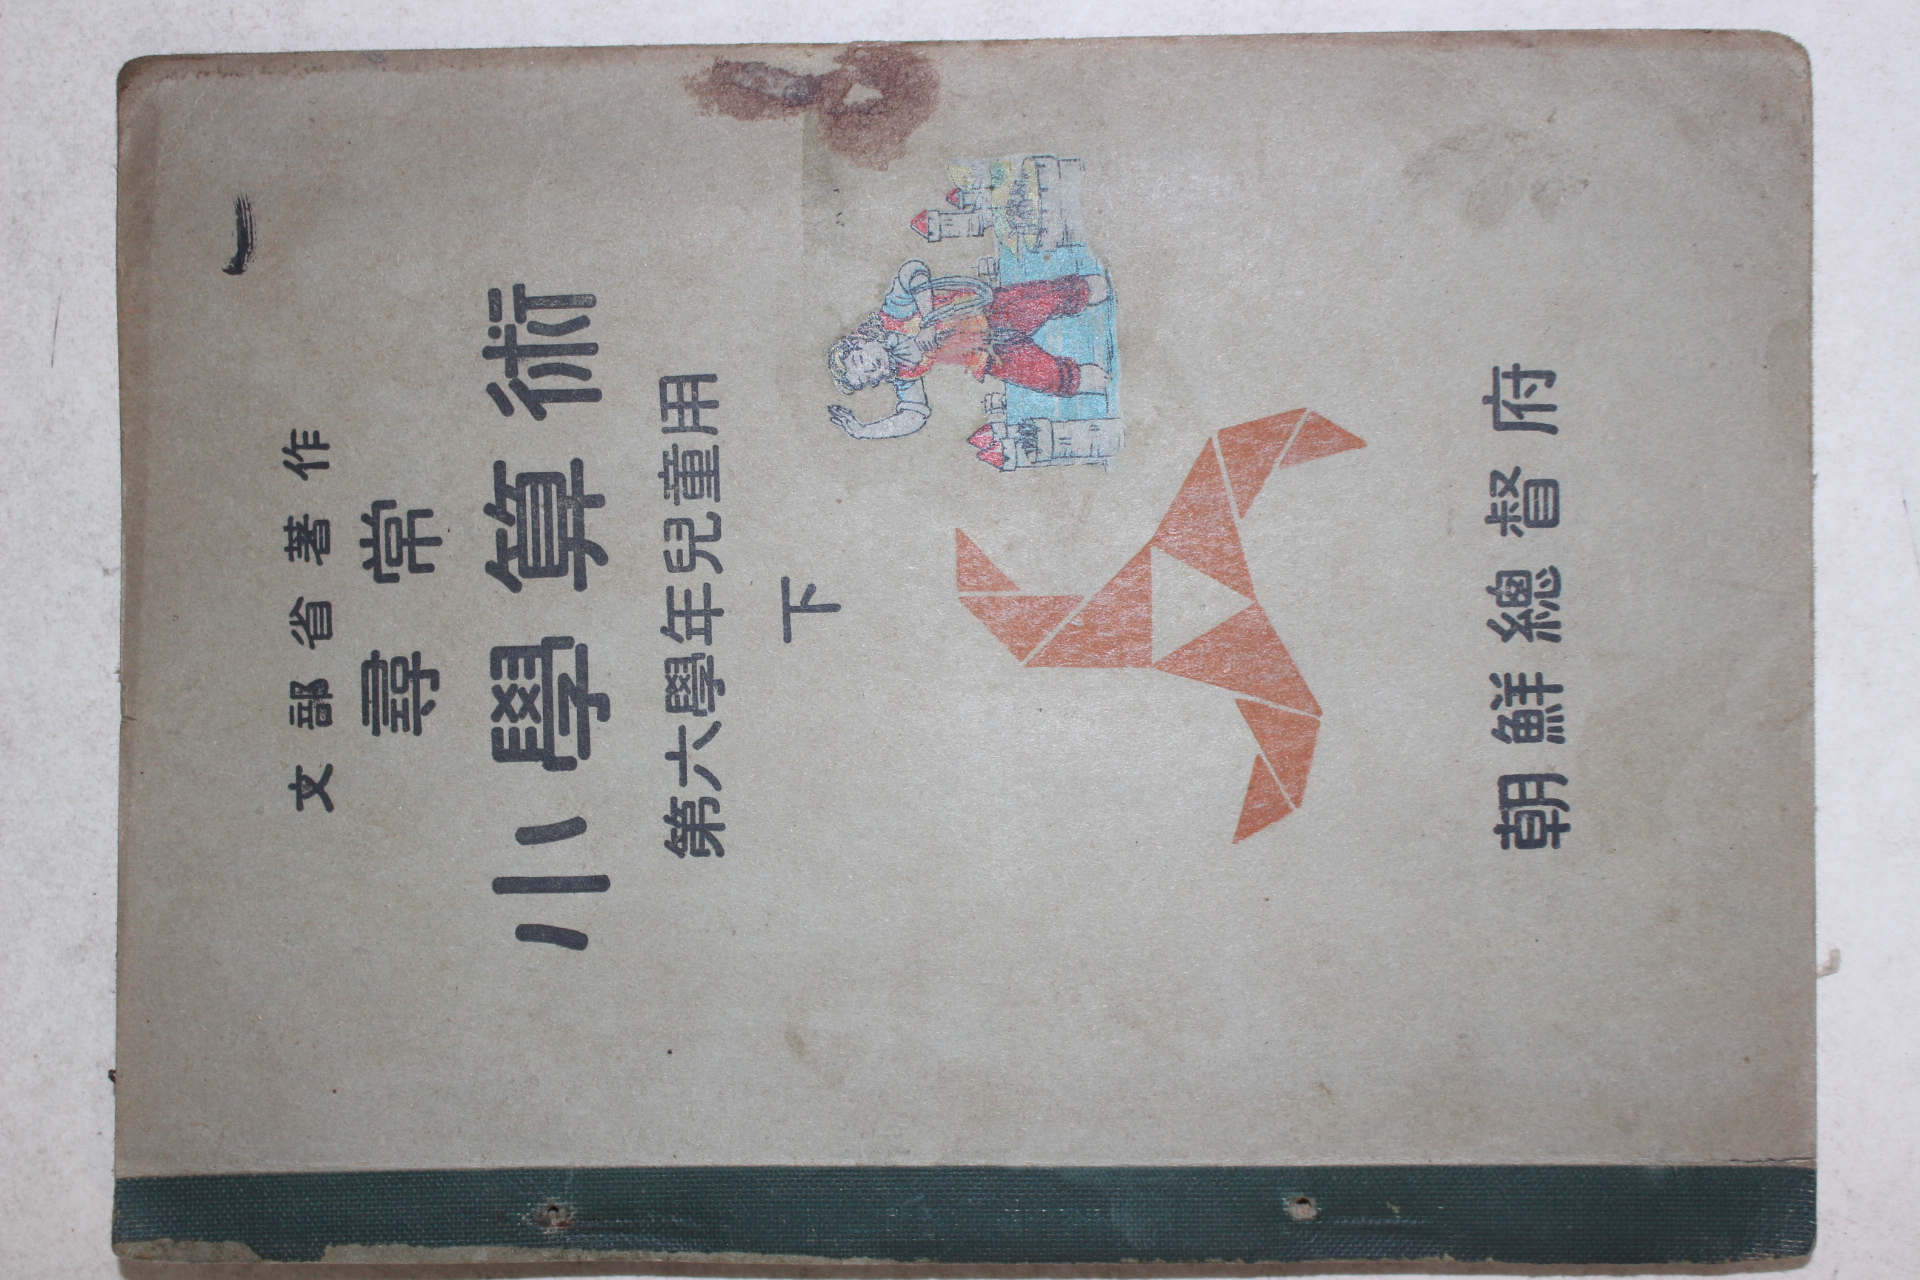 文部省著作
尋常
小學算術
第六學年兒童用
下
朝鮮總督府